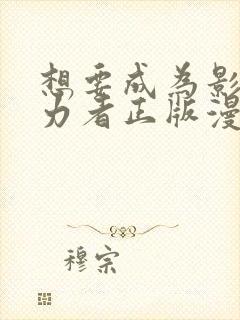 想要成为影
力者正版漫
穆宗